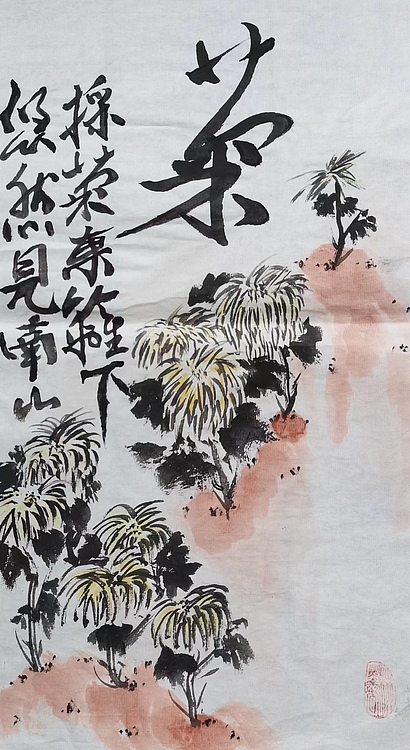 菊
採菊東籬下
悠然見南山